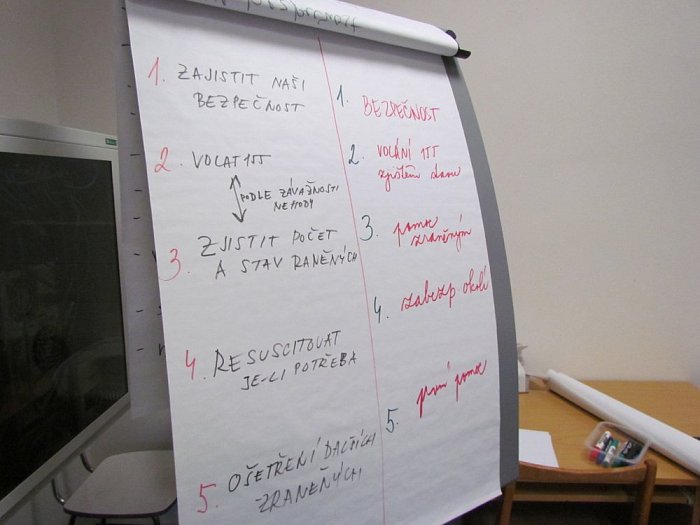 1. ZAJISTIT NAŠI
BEZPEČNOST
2. VOLAT 155
PODLE ZÁVAŽNOSTI
NEHODY
3. ZJISTIT POČET
A STAV RANĚNÝCH
4. RESUSCITOVAT
JE-LI POTŘEBA
5. OŠETŘENÍ DALŠÍCH
ZRANĚNÝCH
1. BEZPEČNOST
2. VOLÁNÍ 155
zjištění stavu
3. pomoc
zraněným
4. zabezp. okolí
5. první pomoc